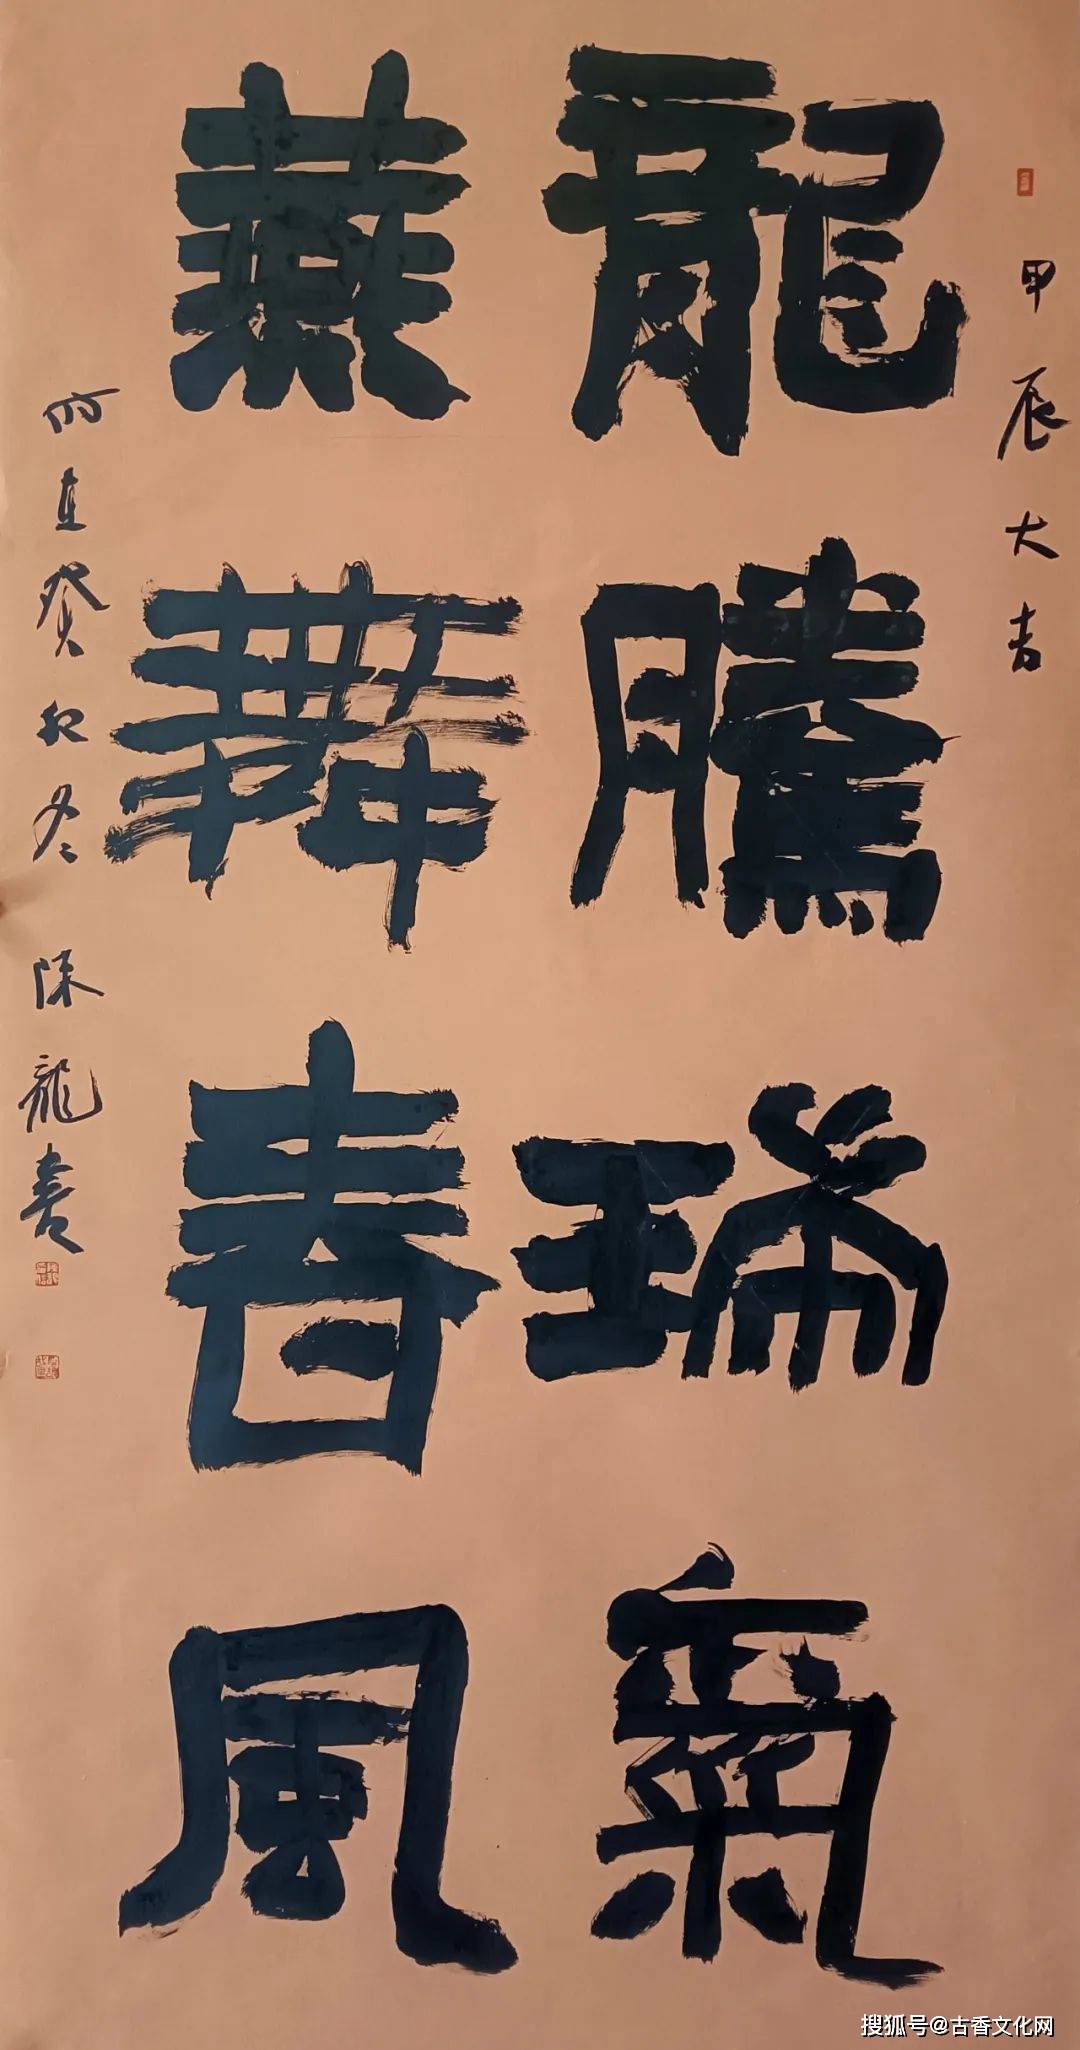 甲辰大吉
龍騰瑞氣
燕舞春風
時在癸卯冬 陳龍書
搜狐号@古香文化网